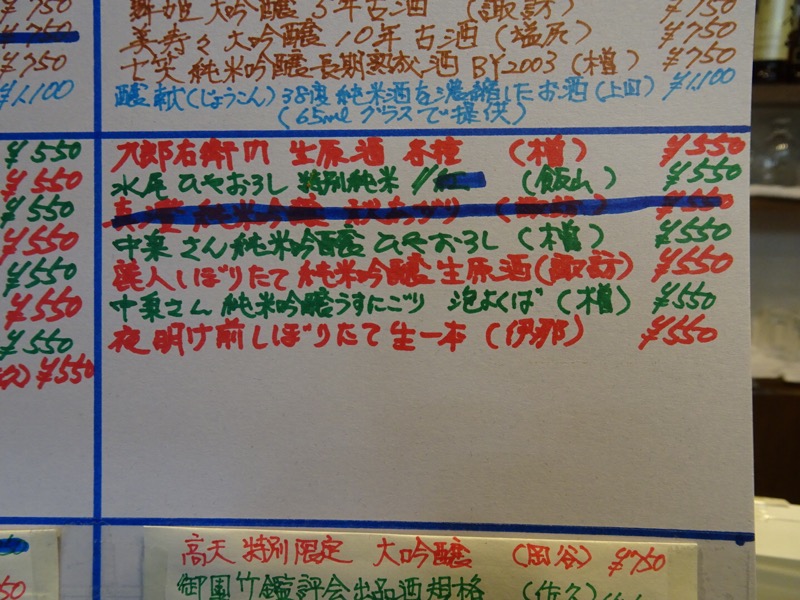 ¥750
¥750
¥750
¥1,100
¥550
¥550
¥550
¥550
¥550
¥550
¥550
¥550
舞姫 大吟醸 5年古酒 (諏訪) ¥750
美寿々 大吟醸 10年古酒 (塩尻) ¥750
七笑 純米吟醸長期熟成酒 BY2003 (樽) ¥750
醸献(じょうこん) 38度 純米酒を濃縮したお酒(上田) ¥1,100
(65mlグラスで提供)
九郎右衛門 生原酒 各種 (樽) ¥550
水尾 ひやおろし 特別純米 (飯山) ¥550
純米吟醸 ¥550
中乗さん 純米吟醸 ひやおろし (樽) ¥550
麗人しぼりたて 純米吟醸生原酒(諏訪) ¥550
中乗さん 純米吟醸うすにごり 泡よくば (樽) ¥550
夜明け前しぼりたて生一本 (伊那) ¥550
高天 特別限定 大吟醸 (岡谷) ¥750
御園竹鑑評会出品酒規格 (佐久)